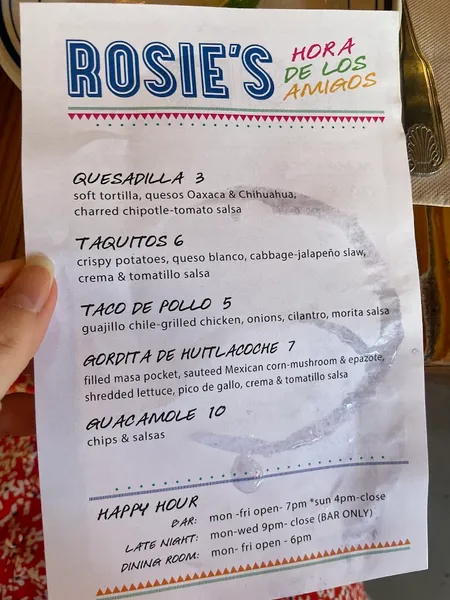 ROSIE'S
HORA
DE LOS
AMIGOS
QUESADILLA 3
soft tortilla, quesos Oaxaca & Chihuahua,
charred chipotle-tomato salsa
TAQUITOS 6
crispy potatoes, queso blanco, cabbage-jalapeño slaw,
crema & tomatillo salsa
TACO DE POLLO 5
guajillo chile-grilled chicken, onions, cilantro, morita salsa
GORDITA DE HUITLACOCHE 7
filled masa pocket, sauteed Mexican corn-mushroom & epazote,
shredded lettuce, pico de gallo, crema & tomatillo salsa
GUACAMOLE 10
chips & salsas
HAPPY HOUR
BAR: mon -fri open- 7pm *sun 4pm-close
LATE NIGHT: mon-wed 9pm- close (BAR ONLY)
DINING ROOM: mon- fri open - 6pm